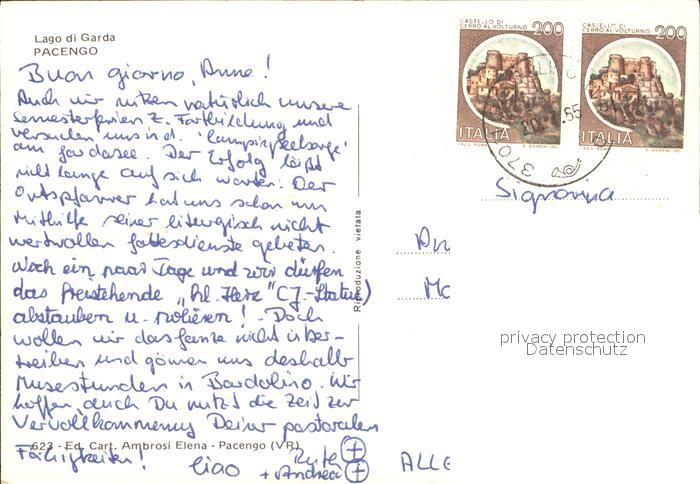 Lago di Garda
PACENGO
Buon giorno, Anne!
Auch wir nützen natürlich unsere
Semesterferien z. Fortbildung und
versuchen uns i.d. 'Campingseelsorge'
am Gardasee. Der Erfolg läßt
nicht lange auf sich warten: Der
Ortspfarrer hat uns schon um
Mithilfe seiner liturgisch nicht
wertvollen Gottesdienste gebeten.
Noch ein paar Tage und wir dürfen
das freistehende „Hl. Herz" (J-Statue)
abstauben u. polieren! - Doch
wollen wir das Ganze nicht über-
treiben und gönnen uns deshalb
Musestunden in Bardolino. Wir
hoffen, auch Du nutzt die Zeit zur
Vervollkommnung Deiner pastoralen
623 - Ed. Cart. Ambrosi Elena - Pacengo (VR)
Fähigkeiten!
Ciao
+ Andrea
Riproduzione vietata
CASTELLO DI
CERRO AL VOLTURNO 200
ITALIA
CASTELLO DI
CERRO AL VOLTURNO 200
ITALIA
370
Signorina
An
Mo
privacy protection
Datenschutz
ALLE